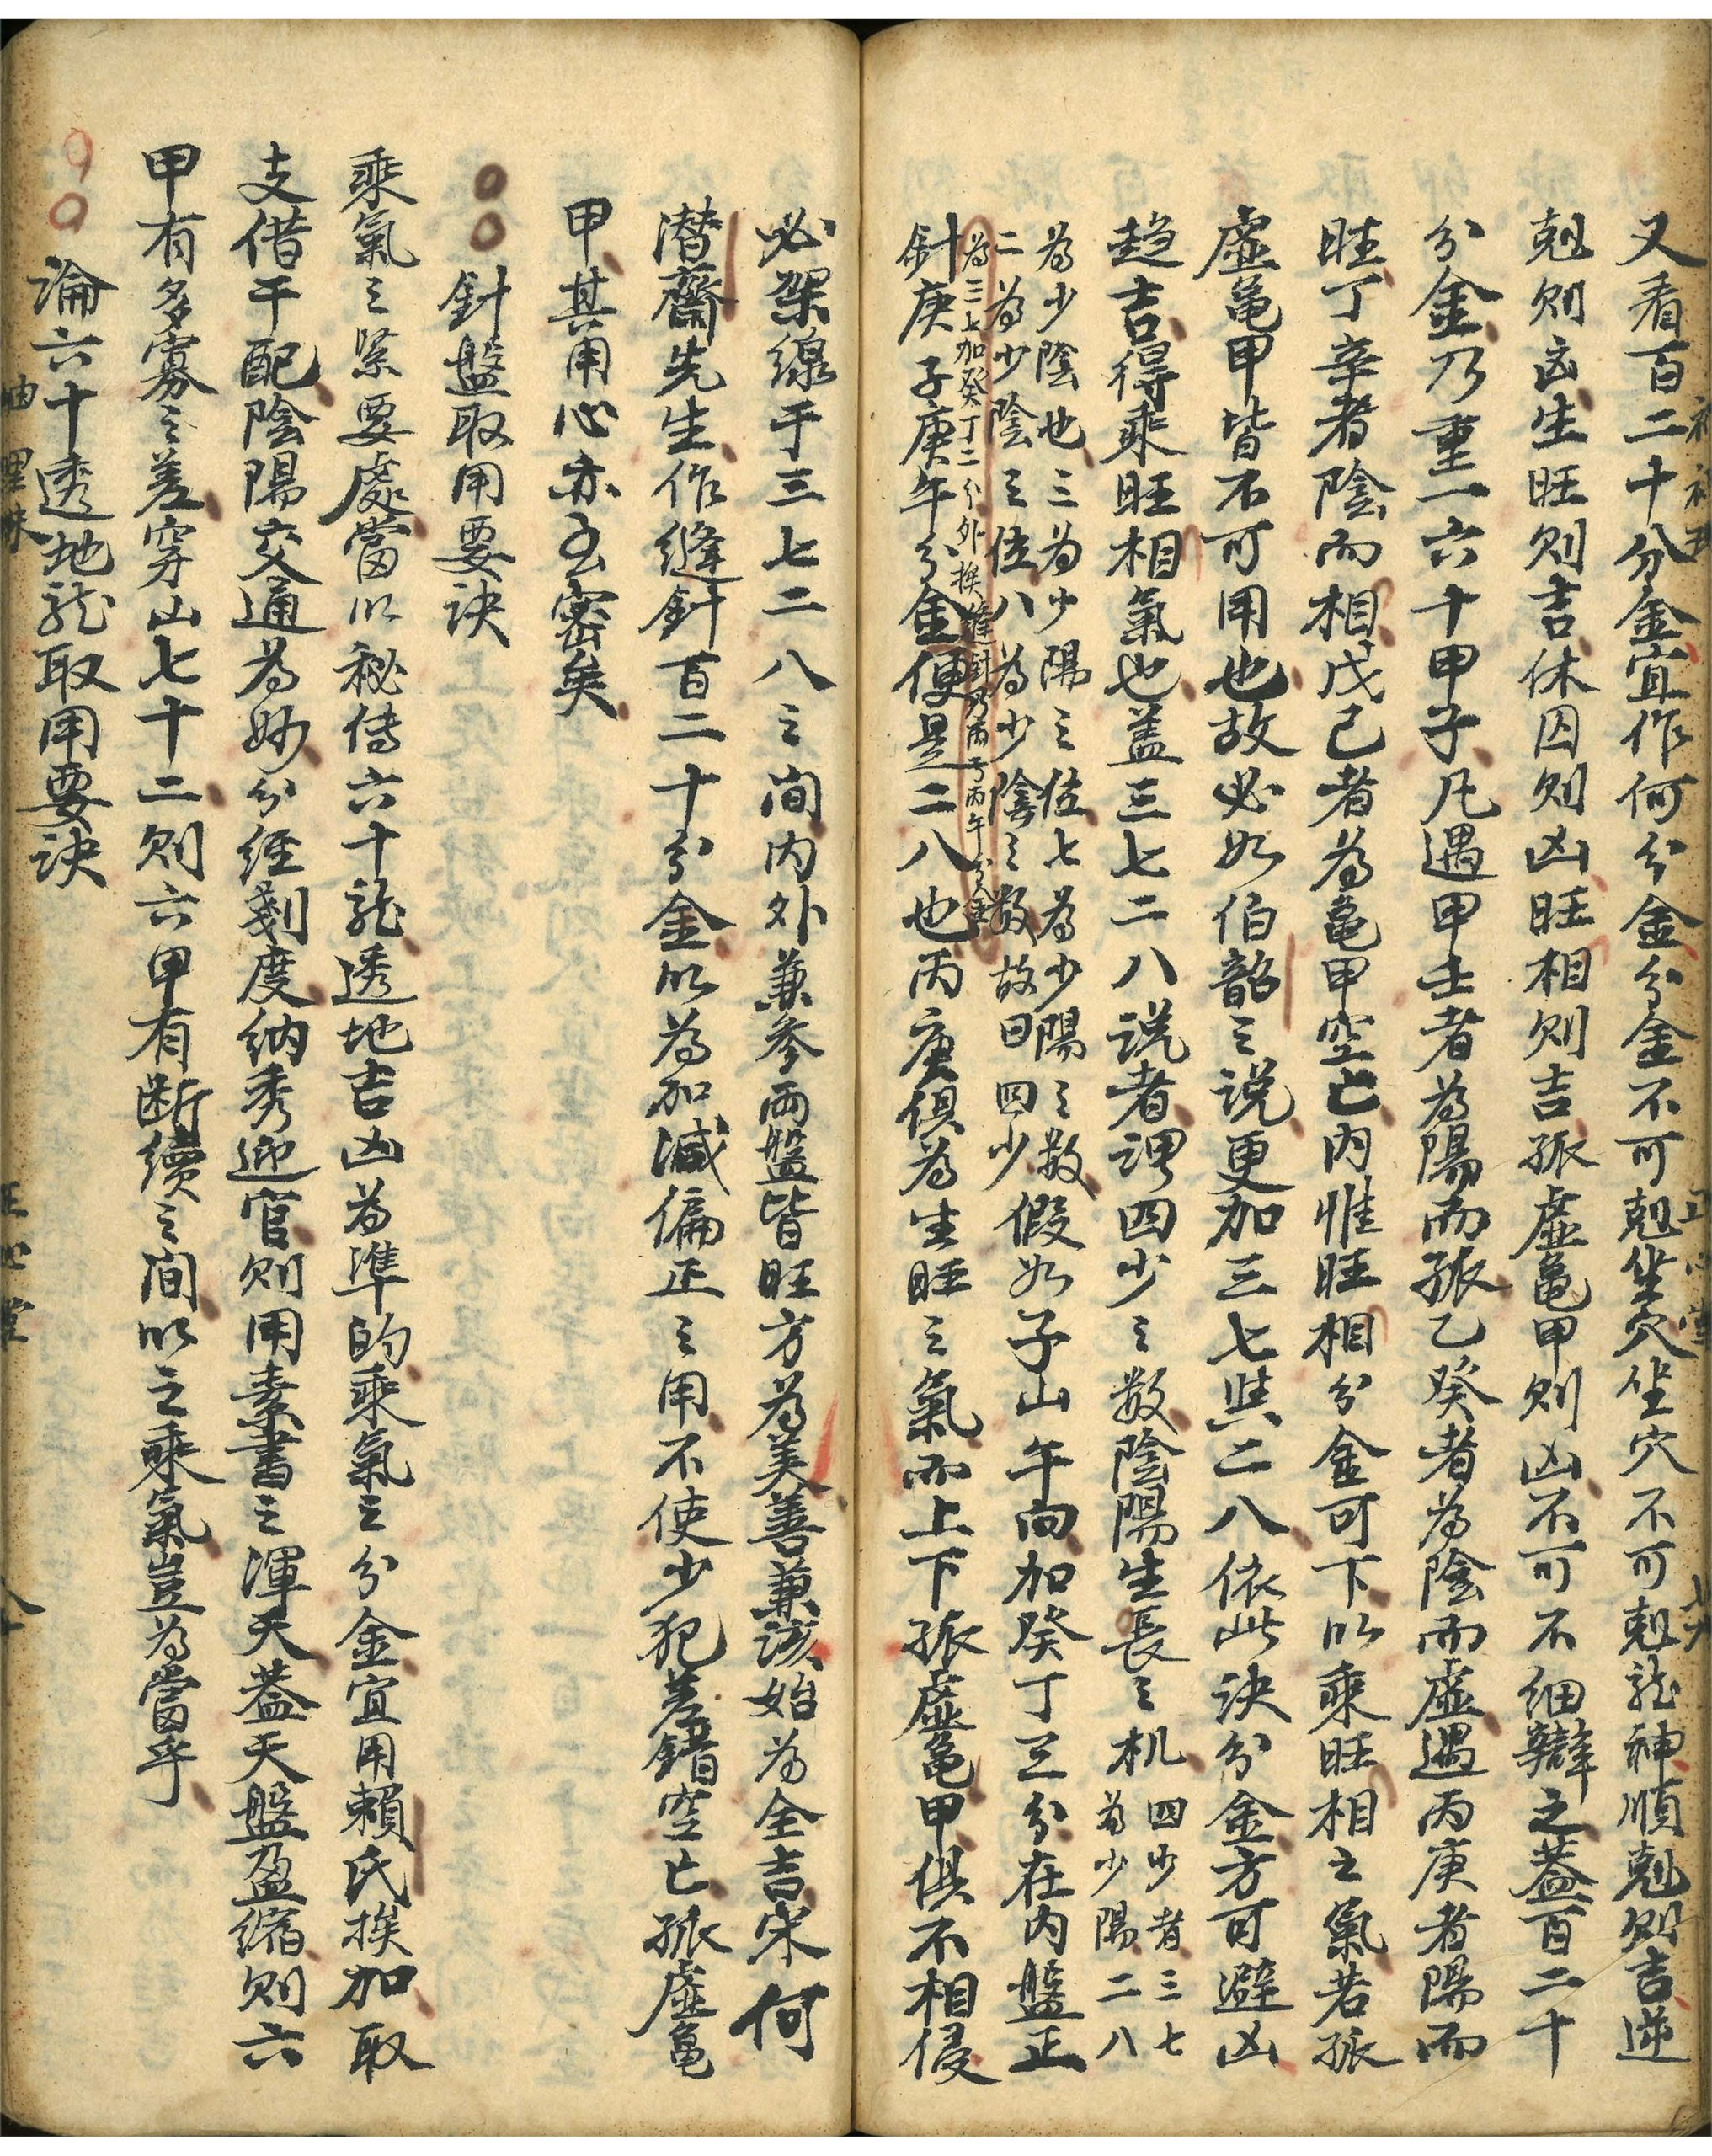 又看百二十分金宜作何分金分金不可尅坐穴坐穴不可尅龍神順尅則吉逆
尅則凶生旺則吉休囚則凶旺相則吉孤虛龜甲則凶不可不細辯之蓋百二十
分金乃重一六十甲子凡遇甲壬者為陽而孤乙癸者為陰而虛遇丙庚者陽而
旺丁辛者陰而相戊己者為龜甲空亡內惟旺相分金可下以乘旺相之氣若孤
虛龜甲皆不可用也故必如伯韶之说更加三七與二八依此訣分金方可避凶
趋吉得乘旺相氣也盖三七二八说者谓四少之数陰陽生長之机四少者三七
為少陽二八
為少陰也三為少陽之位七為少陽之数
二為少陰之位八為少陰之数故曰四少
假如子山午向加癸丁三分在內盤正
為三七加癸丁二分外挨縫針乃丙子丙午分金
針庚子庚午分金便是二八也丙庚俱為生旺之氣而上下孤虛龜甲俱不相侵
必架線于三七二八之间內外兼参両盤皆旺方為美善兼该始為全吉宋何
潜齋先生作縫針百二十分金以為加減偏正之用不使少犯差錯空亡孤虛龜
甲其用心亦至密矣
針盤取用要訣
乘氣之緊要處當以秘傳六十龍透地吉凶為準的乘氣之分金宜用賴氏挨加取
支借干配陰陽交通為妙分經剗度納秀迎官則用素書之渾天蓋天盤盈縮則六
甲有多寡之差穿山七十二則六甲有断續之间以之乘氣豈為當乎
論六十透地龍取用要訣